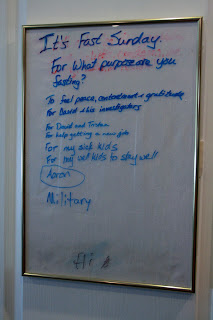 It's Fast Sunday.
For What purpose are you
fasting?
To feel peace, contentment & gratitude
For David & his investigators
For David and Tristan
For help getting a new job
For my sick kids
For my well kids to stay well
Aaron
Military